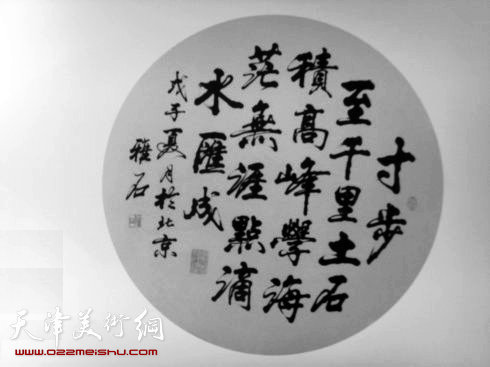 寸步
至千里土石
積高峰學海
茫無涯點滴
水匯成
戊子夏月於北京
雅石
天津美術網
www.022meishu.com